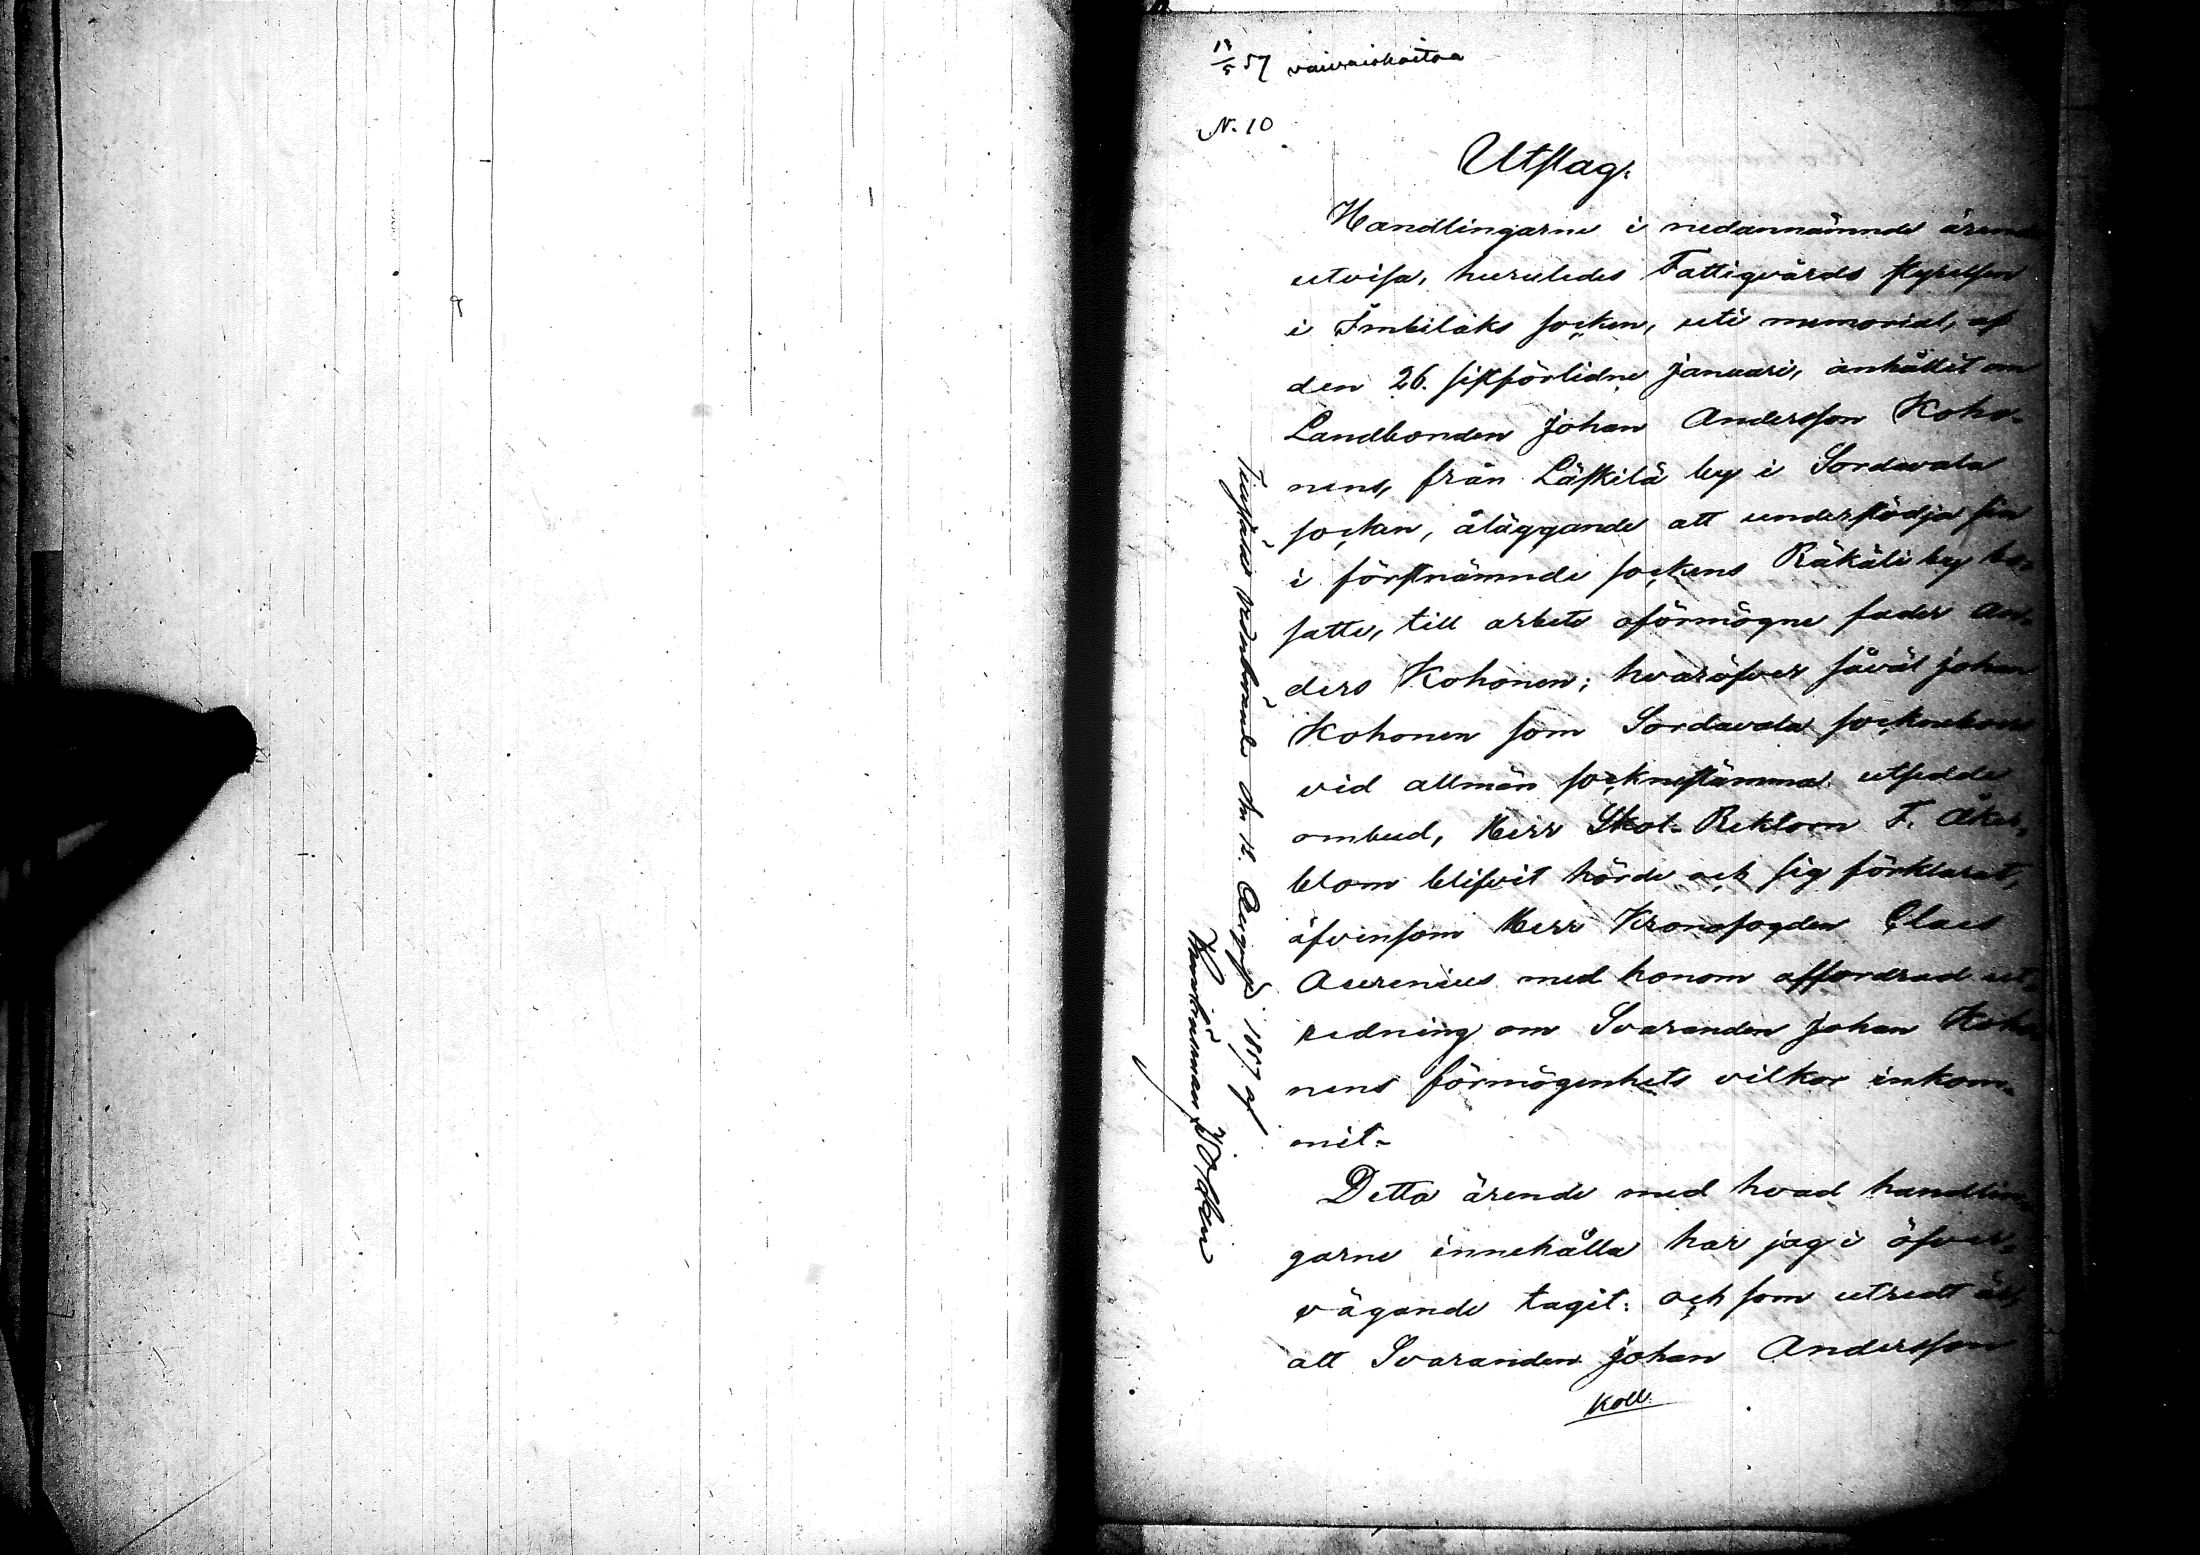 18/5 57 vaivaishoitoa
N. 10
Utslag.
Handlingarne i nedannämnde ärende
utvisa, huruledes Fattigvårds styrelsen
i Imbilaks socken, uti memorial, af
den 26. sistförlidne Januari, anhållit om
Landbonden Johan Andersson Koho-
nens, från Läskilä by i Sordavala
socken, åläggande att understödja sin
i förstnämnde sockens Räkäli by bo-
satte, till arbete oförmögne fader An-
ders Kohonen; hvaröfver såväl Johan
Kohonen som Sordavala sockneboers
vid allmän socknestämma utsedde
ombud, Herr Skol-Rektorn F. Åker-
blom blifvit hörde och sig förklarat,
äfvensom Herr Kronofogden Claes
Aurenius med honom affordrad ut-
redning om Svaranden Johan Koho-
nens förmögenhets vilkor inkom-
mit.
Detta ärende med hvad handlin-
garne innehålla har jag i öfver-
vägande tagit: och som utredt är,
att Svaranden Johan Andersson
Koll.
Tillstäldes vederbörande den 12. Augusti 1857 af